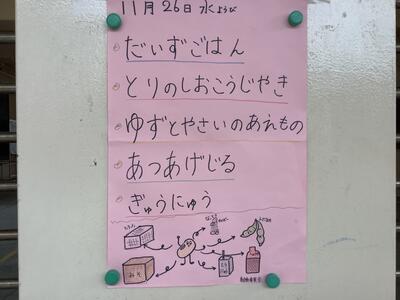 11月26日水ようび
だいずごはん
とりのしおこうじやき
ゆずとやさいのあえもの
あつあげじる
ぎゅうにゅう
みそ